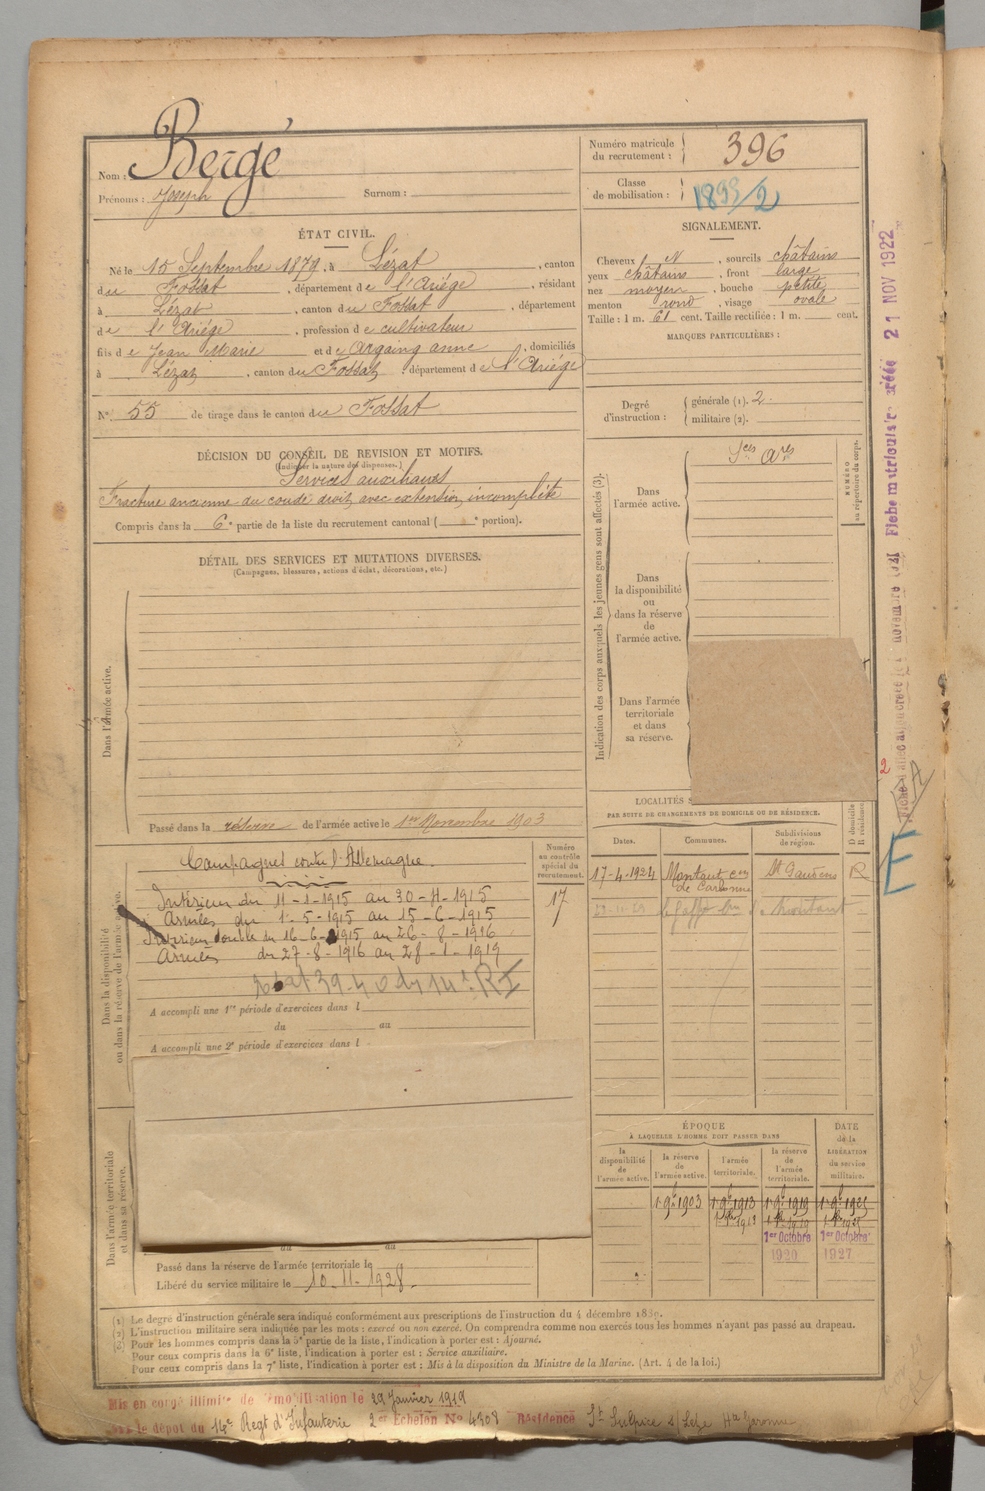 Nom : Bergé
Prénoms : Joseph Surnom :
Numéro matricule du recrutement : 396
Classe de mobilisation : 1899/2
ÉTAT CIVIL.
Né le 15 Septembre 1879, à Lézat, canton
du Fossat, département de l'Ariége, résidant
à Lézat, canton du Fossat, département
de l'Ariége, profession de cultivateur
fils de Jean Marie et de Argaing anne, domiciliés
à Lézat, canton du Fossat, département de l'Ariége
N° 55 de tirage dans le canton du Fossat
SIGNALEMENT.
Cheveux N, sourcils châtains
yeux châtains, front large
nez moyen, bouche petite
menton rond, visage ovale
Taille : 1 m. 61 cent. Taille rectifiée : 1 m. cent.
MARQUES PARTICULIÈRES :
Degré d'instruction : générale (1). 2
militaire (2).
DÉCISION DU CONSEIL DE REVISION ET MOTIFS.
(Indiquer la nature des dispenses.)
Services auxiliaires
Fracture ancienne du coude droit avec extention incomplète
Compris dans la 6e partie de la liste du recrutement cantonal ( e portion).
DÉTAIL DES SERVICES ET MUTATIONS DIVERSES.
(Campagnes, blessures, actions d'éclat, décorations, etc.)
Dans l'armée active.
Passé dans la réserve de l'armée active le 1er Novembre 1903
Indication des corps auxquels les jeunes gens sont affectés (3).
Dans l'armée active.
Sces ares
NUMÉRO au répertoire du corps.
Dans la disponibilité ou dans la réserve de l'armée active.
Dans l'armée territoriale et dans sa réserve.
Dans la disponibilité ou dans la réserve de l'armée active.
Campagnes contre l'Allemagne.
Intérieur du 11-1-1915 au 30-4-1915
Armées du 1-5-1915 au 15-6-1915
Intérieur double du 16-6-1915 au 26-8-1916
Armées du 27-8-1916 au 28-1-1919
Numéro au contrôle spécial du recrutement.
17
A accompli une 1re période d'exercices dans l
du au
A accompli une 2e période d'exercices dans l
LOCALITÉS
PAR SUITE DE CHANGEMENTS DE DOMICILE OU DE RÉSIDENCE.
Dates. Communes. Subdivisions de région. D domicile R résidence.
17-4-1924 Montaut con de Carbonne St Gaudens R
Dans l'armée territoriale et dans sa réserve.
du au
Passé dans la réserve de l'armée territoriale le
Libéré du service militaire le 10-11-1928.
ÉPOQUE
À LAQUELLE L'HOMME DOIT PASSER DANS
DATE de la LIBÉRATION du service militaire.
la disponibilité de l'armée active.
la réserve de l'armée active.
l'armée territoriale.
la réserve de l'armée territoriale.
1 9bre 1903 1 9bre 1913 1 9bre 1919 1 9bre 1925
1er Octobre 1er Octobre
1920 1927
(1) Le degré d'instruction générale sera indiqué conformément aux prescriptions de l'instruction du 4 décembre 1889.
(2) L'instruction militaire sera indiquée par les mots : exercé ou non exercé. On comprendra comme non exercés tous les hommes n'ayant pas passé au drapeau.
(3) Pour les hommes compris dans la 5e partie de la liste, l'indication à porter est : Ajourné.
Pour ceux compris dans la 6e liste, l'indication à porter est : Service auxiliaire.
Pour ceux compris dans la 7e liste, l'indication à porter est : Mis à la disposition du Ministre de la Marine. (Art. 4 de la loi.)
Mis en congé illimité de démobilisation le 29 Janvier 1919
dans le dépôt du 14e Regt d'Infanterie 2er Echelon No 4308 Résidence St Sulpice s/ Lèze Hte Garonne
Fiche matriculaire créée 21 NOV 1922